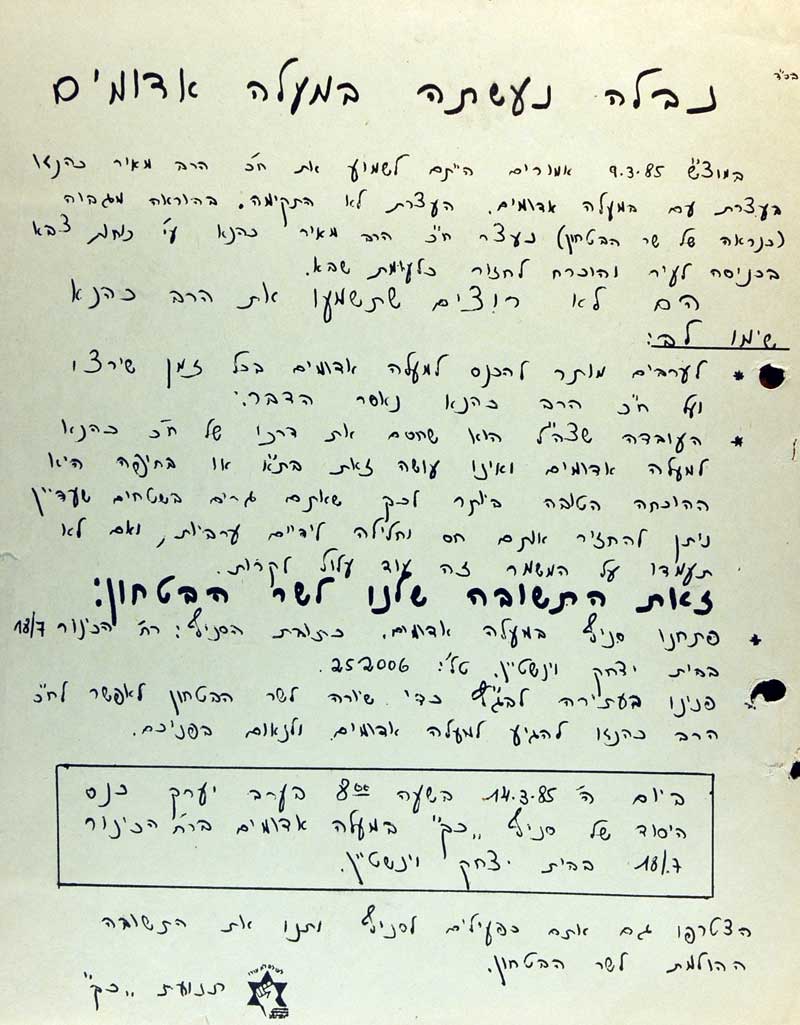 בס"ד
נבלה נעשתה במעלה אדומים
במוצ"ש 9.3.85 אמורים הייתם לשמוע את ח"כ הרב מאיר כהנא
בעצרת עם במעלה אדומים. העצרת לא התקימה. בהוראה מגבוה
(כנראה של שר הבטחון) נעצר ח"כ הרב מאיר כהנא ע"י כוחות צבא
בכניסה לעיר והוכרח לחזור כלעומת שבא.
הם לא רוצים שתשמעו את הרב כהנא
שימו לב:
* לערבים מותר להכנס למעלה אדומים בכל זמן שירצו
ועל ח"כ הרב כהנא נאסר הדבר.
* העובדה שצה"ל הוא שחסם את דרכו של ח"כ כהנא
למעלה אדומים ואינו עושה זאת בת"א או בחיפה היא
ההוכחה הטובה ביותר לכך שאתם גרים בשטחים שעדיין
ניתן להחזיר אותם חס וחלילה לידיים ערביות, ואם לא
תעמדו על המשמר זה עוד עלול לקרות.
זאת התשובה שלנו לשר הבטחון:
* פתחנו סניף במעלה אדומים. כתובת הסניף: רח' הכינור 18/7
בבית יצחק וינשטיין. טל': 252006.
* פנינו בעתירה לבג"ץ כדי שיורה לשר הבטחון לאפשר לח"כ
הרב כהנא להגיע למעלה אדומים ולנאום בפניכם.
ביום ה' 14.3.85 בשעה 8:00 בערב יערך כנס
היסוד של סניף "כך" במעלה אדומים ברח' הכינור
18/7 בבית יצחק וינשטיין.
הצטרפו גם אתם כפעילים לסניף ותנו את התשובה
ההולמת לשר הבטחון.
תנועת "כך"